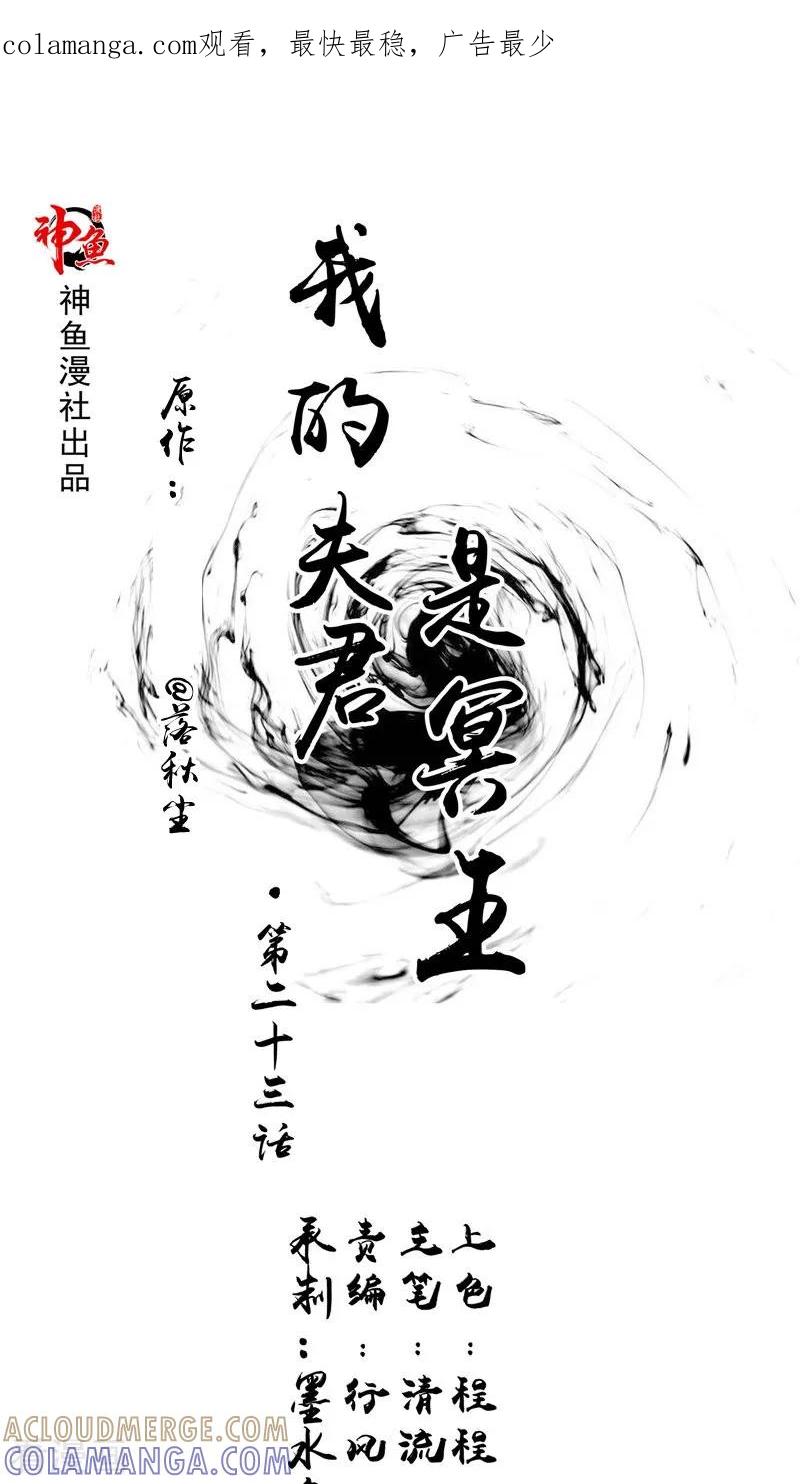 colamanga.com观看，最快最稳，广告最少
神鱼
神鱼漫社出品
原作：
@落秋尘
我的夫君
是冥王
·第二十三话
承制：墨水
责编：行风
主笔：清流
上色：程程
ACLOUDMERGE.COM
COLAMANGA.COM